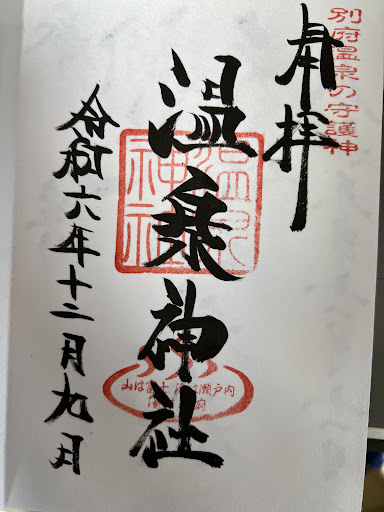 別府温泉の守護神
奉拝
温泉神社
温泉
神社
山は富士 瀬戸内
府
令和六年十二月九日